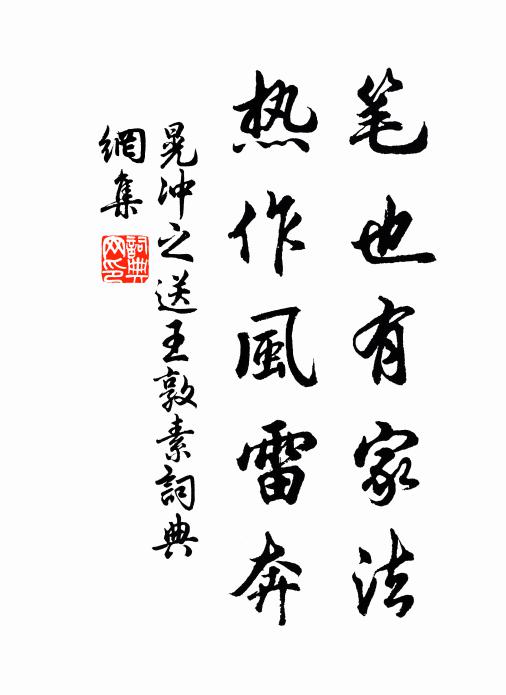 笔也有家法
热作風雷奔
晃冲之送王敦素詞典
網集
詞典
网印